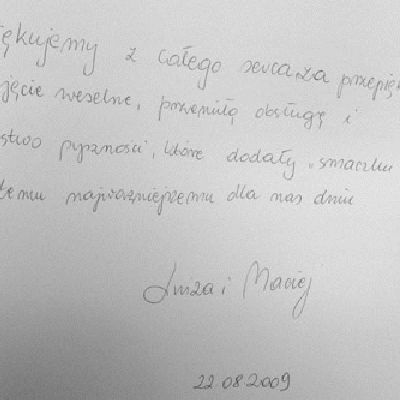 iękujemy z całego serca za przepięk
yjęcie weselne, przemiłą obsługę i
stwo pyszności, które dodały „smaczku
temu najważniejszemu dla nas dniu
Luiza i Maciej
22.08.2009